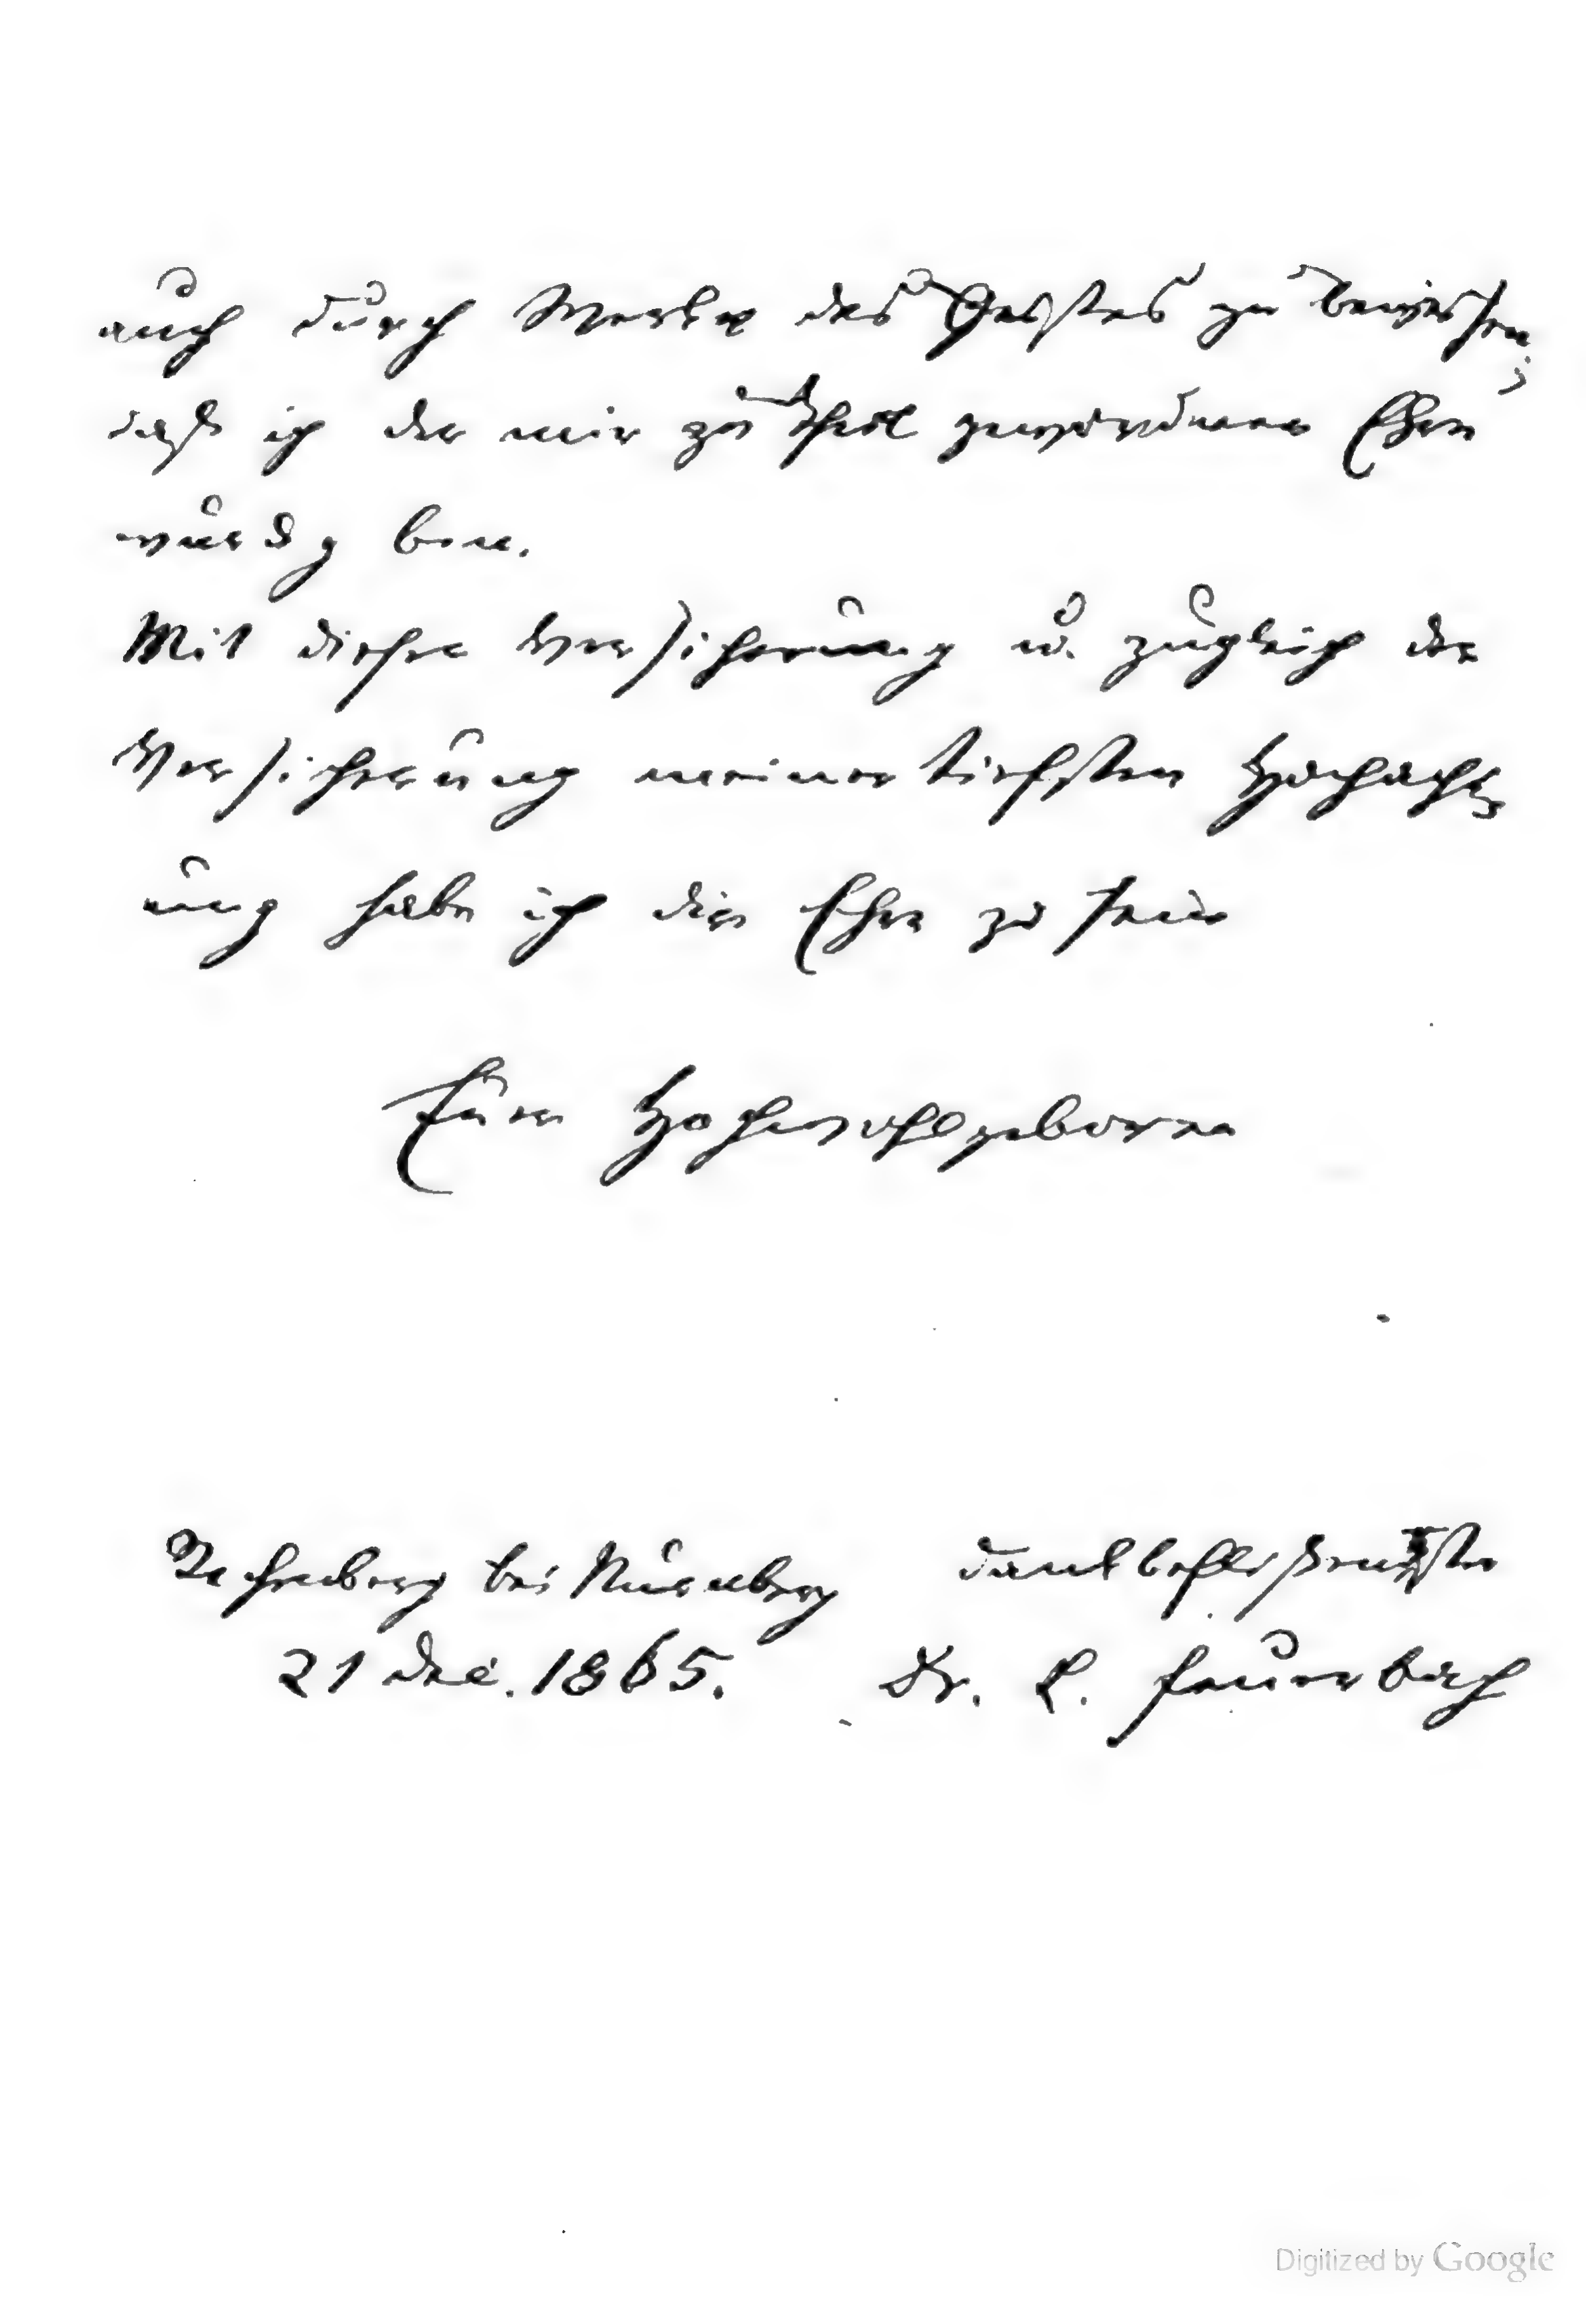 auch durch Werke des Geistes zu beweisen,
daß ich der mir zu Theil gewordenen Ehre
würdig bin.
Mit dieser Versicherung u. zugleich der
Versicherung meiner tiefsten Hochacht-
ung habe ich die Ehre zu sein
Euer Hochwohlgeboren
Rechenberg bei Nürnberg dankbeflissenster
21 Dec. 1865. Dr. L. Feuerbach
Digitized by Google